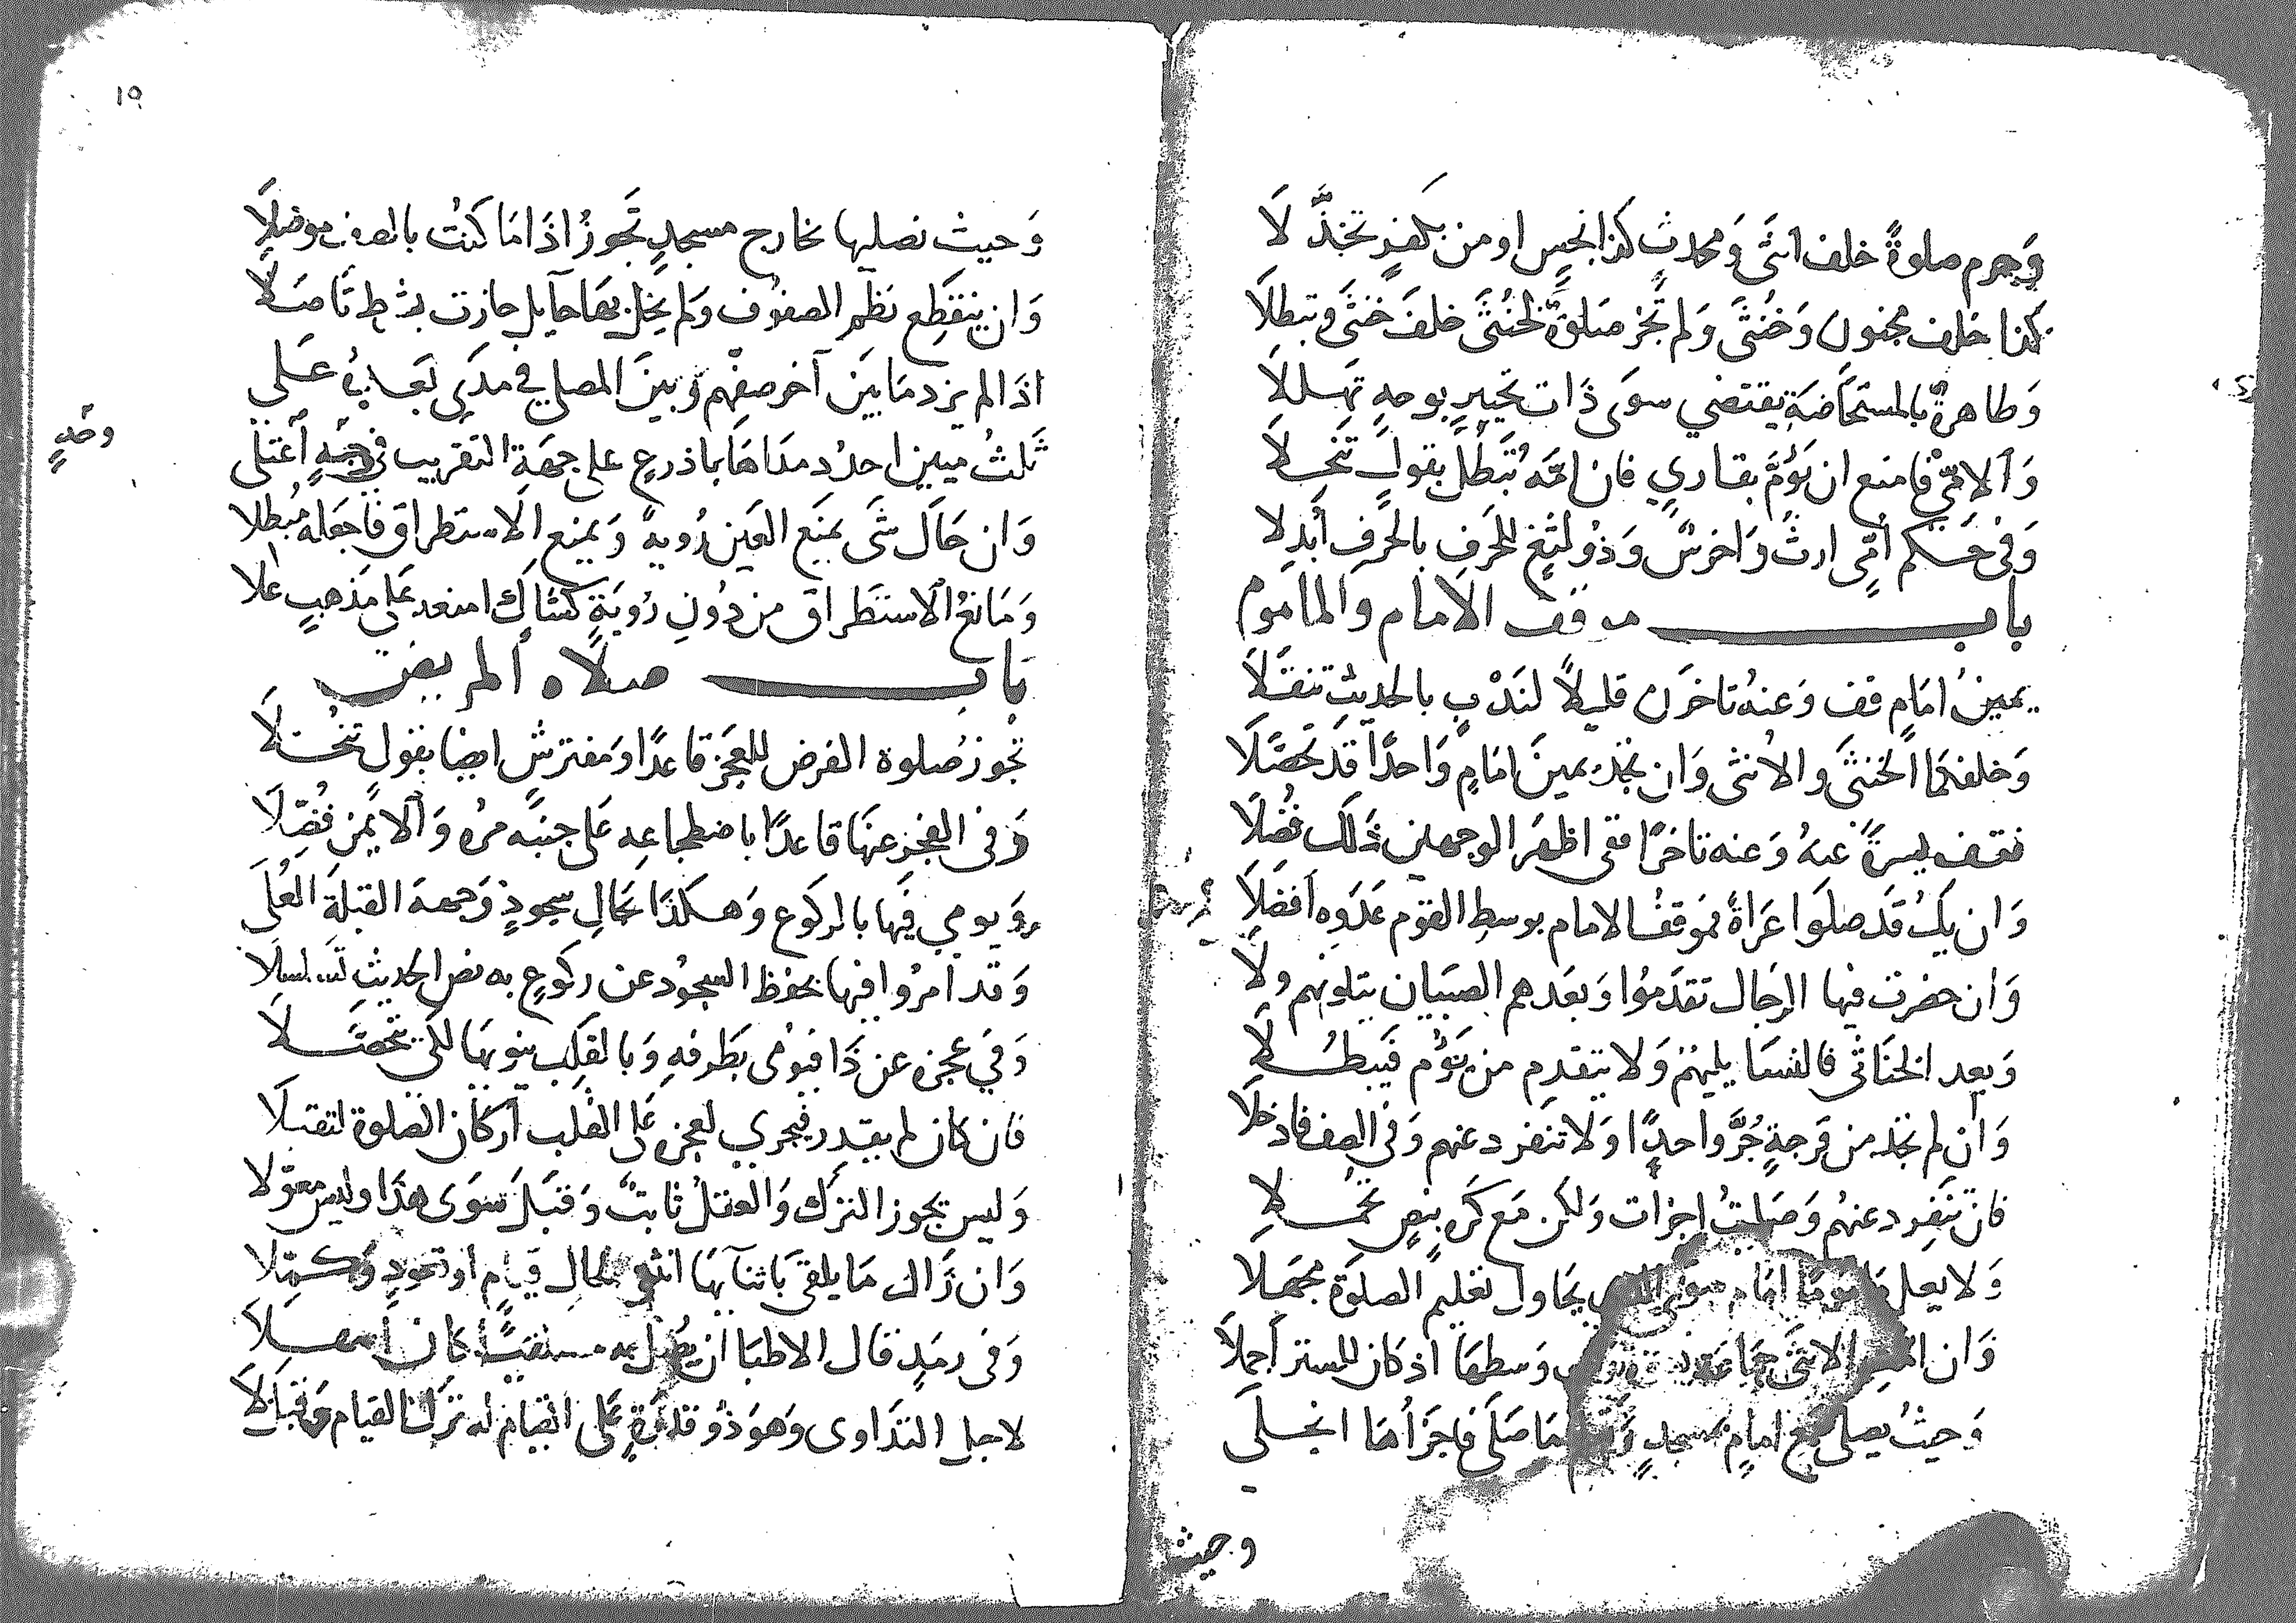 وَحرم صلوةً خلف انثَى وَمحدث كذا نجسٍ او من بكفرٍ تخذَّلَا
كذا خلف مجنون وَخُنثَى وَلم تَجُز صَلوةٌ لخُنثَى خلفَ خُنثَى وتبطلَا
وَطاهرةٌ بالمستحَاضَةِ يقتضي سوَى ذَات تحييرٍ بوجهٍ تهللَا
وَالامّيّ فامنع ان يَؤُمَّ بقاريٍ فان امَّهُ تَبطُل بقولٍ تنخلَا
وَفى حكم اُمّى ارثَ وَاخرسٌ وَذُو لثغٍ للحَرفِ بالحَرفِ أبدِلا
باب موقف الامام والماموم
يمينُ امَامٍ قف وَعنهُ تاخرَن قليلاً لنَدْبٍ بالحديثِ تنقلَا
وَخلفهما الخنثَى والأنثى وَان تجد يمينَ امَامٍ وَاحدًا قد تحصَّلَا
فقف يسرةً عنهُ وَعنه تاخرًا ففى اظهرَ الوجهين ذلك فُضّلَا
وَان يكُ قد صلوا عَرَاةً فمَوقفُ الامام بوسطِ القوم عَدَوه افضَلَا
وَان حضرت فيها الرجَال تقدّمُوا وَبعدهم الصبيَان يتلونهم ولا
وَبعد الخنَاثى فالنسَا يليهُمُ وَلا يتقدم من يَؤُم فيبطُلَا
وَان لم تجد من فرجةٍ جُرَّ واحدًا وَلا تنفرد عنهم وَفى الصف فادخلَا
فان تنفرد عنهُم وَصليتُ اجزات ولكن مَع كُرهٍ بنصٍ تحملَا
وَلا يعلُ مامومًا امَام سوَى الذى يحَاول تعليم الصلوَة مجهلَا
وَان الانثَى جمَاعة وسطهَا اذ كان للستر أجملَا
وَحيثُ يصلى مَع امامٍ بمسجدٍ صَلَى فاجزأهَا انجلَى
وحيث
١٥
وَحيث نصليها بخارج مسجدٍ تجَوزُ اذَا مَا كنتُ بالصف موصلَا
وَان ينقطِع نظم الصفوُف وَلم يخل بهَا حآيل جازت بشرط تاصلَا
اذَا لم يزد مَا بَينَ آخر صفّهم وَبينَ المصلي في مدَى بَعدٍ عَلى
ثلثُ ميين احدُد مدَاهَا باذرعٍ على جهَةِ التقريب في وجهٍ اعتلى
وَحدٍ
وَان حَالَ شَى يمنَع العَين رُويةً وَيمنع الاستطراق فاجعَله مُبطلا
وَمَانعُ الاستَطراق من دُون رُويَةٍ كشبَاكٍ امنعه على مَذهبٍ علا
باب صلاه المريض
تجُوز صَلوة الفرض للعَجز قاعدًا وَمفترشٍ ايضا بقول تنخلَا
وَفى العجز عنهَا قاعدًا باضطجاعِه عَلى جنبَه مرهُ وَالايمن فُضّلَا
وَيومي فيها بالركوع وَهكذا بحَالِ سجودٍ وَجهه القبلَة العُلَى
وَقد امرُوا فيها بخفظ السجُود عن ركوعٍ به نص الحديث تسلسلَا
وَفي عجزه عن ذَا فيومى بطرفهِ وَبالقلب ينويهَا لكي تتحصَّلَا
فان كان لم يقدر فيجري لعجزه على القلب أركان الصلوة لتقبلَا
وَليس تجوز الترك وَالعقلُ ثابتٌ وَقيلَ سوَى هذَا وليس معوّلا
وَان زَال مَا يلقَى باثنآيهَا انثنى لحَال قيام او قعودٍ وَكمّلا
وَفى رمَدٍ قال الاطبَا ان يُصَل به مستلقيًا كان أسهلَا
لاجل التدَاوى وَهوَ ذُو قدرَةٍ عَلى القيام له تركُ القيام وَقيل لَا